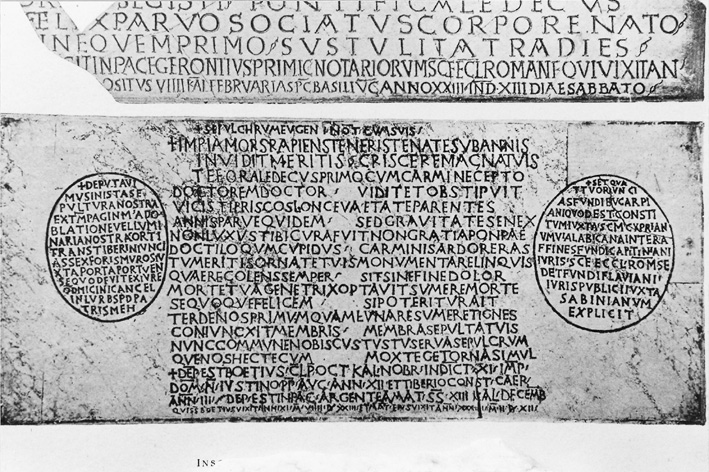 TELIX PARVO SOCIATUS CORPORE NATO
IN EQUEM PRIMO SUSTULIT ATRA DIES
IT IN PACE GERONTIUS PRIMIC NOTARIORUM SC ECCL ROMANE QUI VIXIT AN
OSITUS VIIII KAL FEBRUARIAS PC BASILI VC ANNO XXIII IND XIII DIAE SABBATO
+ SEPULCHRUM EUGENI NOT CUM SUIS
+ IMPIA MORS RAPIENS TENERIS TE NATE SUB ANNIS
INVIDIT MERITIS CRISCERE MAGNA TUIS
TE FORALE DECUS PRIMO CUM CARMINE CEPTO
DOCTOREM DOCTOR VIDIT ET OBSTIPUIT
VICISTI PRISCOS LONCEVA ETATE PARENTES
ANNIS PARVE QUIDEM SED GRAVITATE SENEX
NON LUXUS TIBI CURA FUIT NON GRATIA POMPAE
DOCTILOQUM CUPIDUS CARMINIS ARDOR ERAS
TU MERITIS ORNATE TUIS MONUMENTA RELINQUIS
QUAE RECOLENS SEMPER SIT SINE FINE DOLOR
MORTE TUA GENETRIX OPTAVIT SUMERE MORTE
SE QUOQUE FELICEM SI POTERITUR AIT
TER DENOS PRIMUMQUAM EVNARE SUMERET IGNES
CONIUNCXIT MEMBRIS MEMBRA SEPULTA TUIS
NUNC COMMUNE NOBISCUS TUS TU SERVA SEPULCRUM
QUE NOS HEC TECUM MOX TEGET ORNA SIMUL
+ DEP EST BOETIUS CL P OCT KAL NOBR INDICT XI IMP
DOM N IUSTINO PP AUG ANN XII ET TIBERIO CONST CAER
ANN IIII DEP EST IN PAC ARGENTEA MAT SS XIII KAL DECEMB
+ DEPUTAVI
MUSINISTA SE
PULTURA NOSTRA
EXT M PAGIN M ADO
BLATIONE VEL LUMI
NARIA NOSTRA KORTI
TRANSTIBERINU UNCI
AS SEX FORIS MUROS IU
XTA PORTA PORTUEN
SE QUOD EVIT EX IURE
QD MICINI CANCEL
IN LURBSPDPA
TRIS MEH
+ SET QUA
TTUOR UNCI
AS FUNDI BUCARPI
ANI QUOD EST CONSTI
TUM IUXTA SCM CYPRIAN
UM VIA LABICANA INTER A
FFINES FUNDI CAPITINIANI
IURIS SCE ECCL ROM SE
DET FUNDI FLAVIANI
IURIS PUBLICI IUXTA
SABINIANUM
EXPLICIT
INS